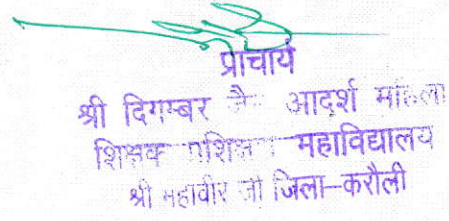 प्राचार्य
श्री दिगम्बर जैन आदर्श महिला
शिक्षक प्रशिक्षण महाविद्यालय
श्री महावीर जी जिला–करौली